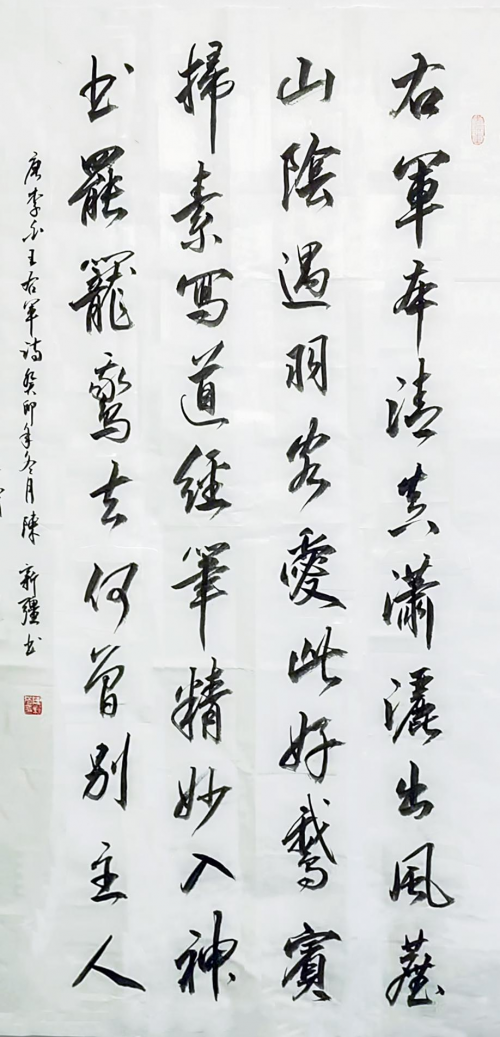 右軍本清真瀟灑出風塵
山陰遇羽客愛此好鵝賓
掃素寫道經筆精妙入神
书罷籠鵞去何曾別主人
唐李白王右軍诗癸卯年冬月陳新疆书